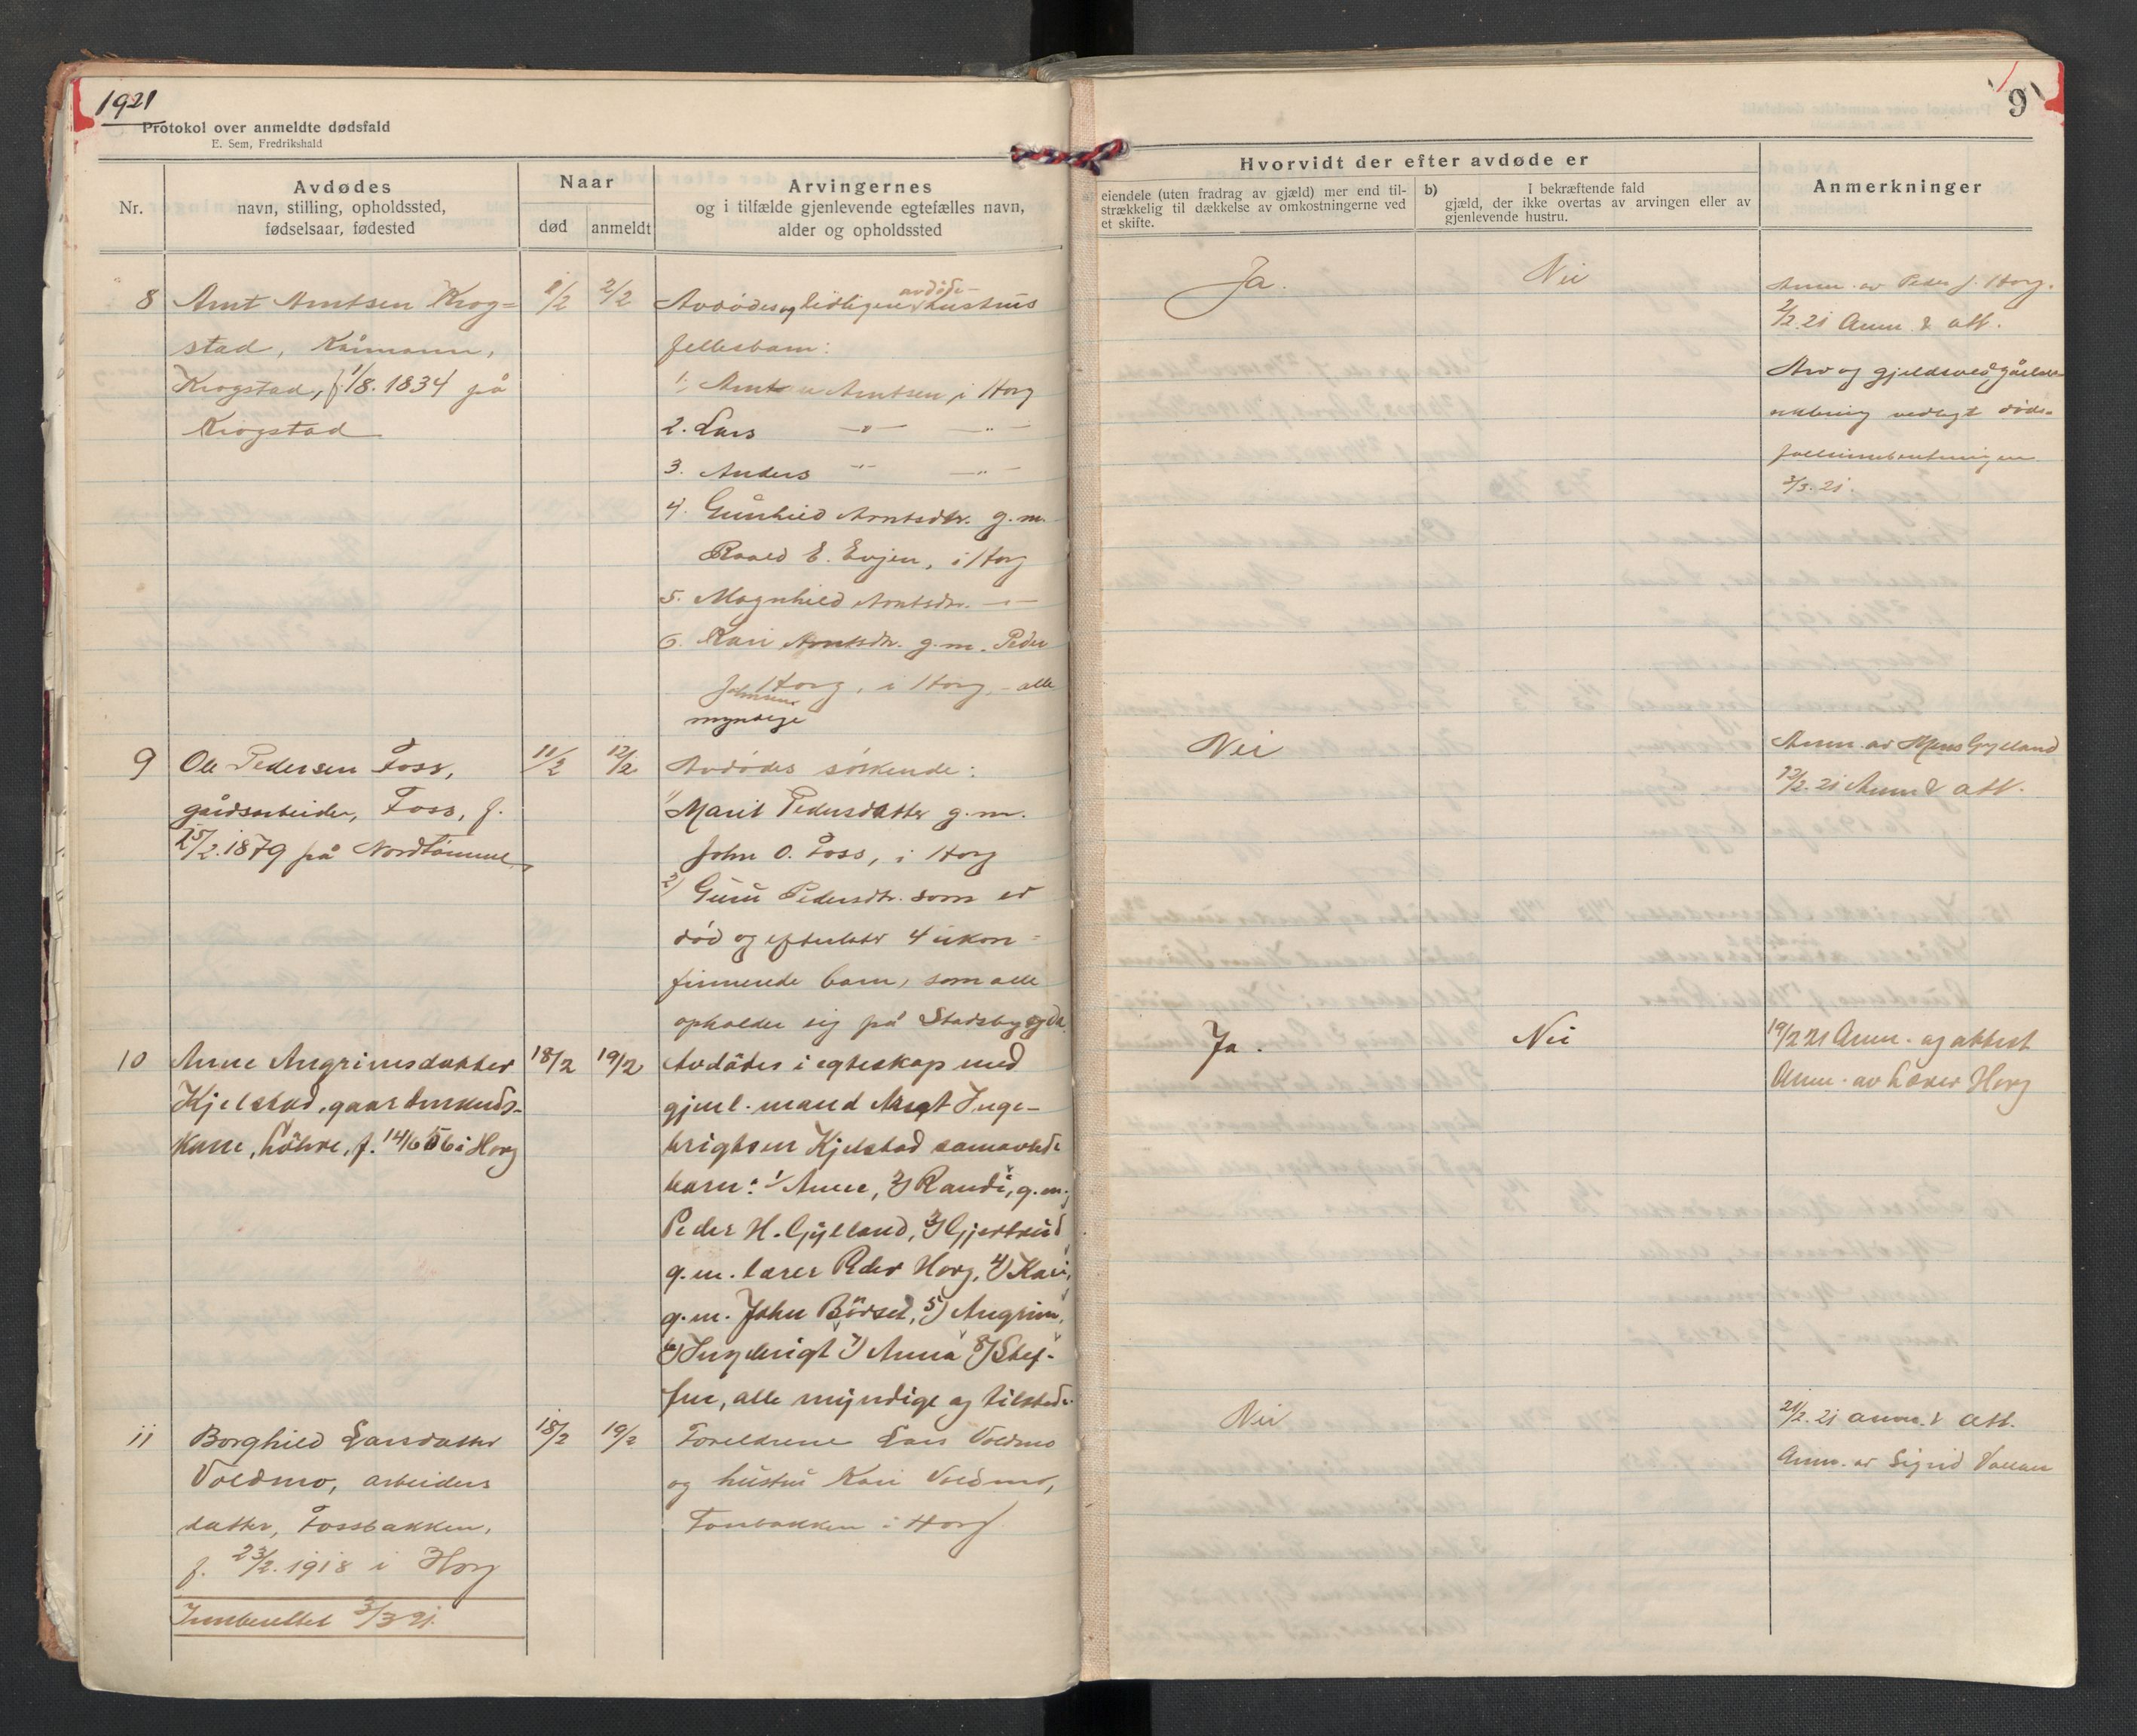 1921
Protokol over anmeldte dødsfald
E. Sem, Fredrikshald
Nr.
Avdødes
navn, stilling, opholdssted,
fødselsaar, fødested
Naar
død
anmeldt
Arvingernes
og i tilfælde gjenlevende egtefælles navn,
alder og opholdssted
8
Arnt Arntsen Krog=
stad, Kårmann,
Krogstad, f. 1/8. 1834 på
Krogstad
1/2
2/2
Avdødes og tidligere avdøde hustrus
fellesbarn:
1. Arnt Arntsen, i Horg
2. Lars —"— —"—
3. Anders —"— —"—
4. Gunhild Arntsdtr. g.m.
Roald E. Evjen, i Horg
5. Magnhild Arntsdtr. —"—
6. Kari Arntsdtr. g.m. Peder
Johnsen Horg, i Horg, - alle
myndige
9
Ole Pedersen Foss,
gårdsarbeider, Foss, f.
25/2. 1879 på Nordtømme
11/2
12/2
Avdødes søskende:
1) Marit Pedersdatter g.m.
John O. Foss, i Horg
2) Guru Pedersdtr. som er
død og efterlater 4 ukon=
firmerede barn, som alle
opholder sig på Stadsbygda.
10
Anne Angrimsdatter
Kjelstad, gaardmands-
kone, Løhre, f. 14/6 56 i Horg
18/2
19/2
Avdødes i egteskap med
gjenl. mand Arnt Inge-
brigtsen Kjelstad samavlede
barn: 1/ Anne, 2) Randi, g.m.
Peder H. Gylland, 3) Gjertrud
g.m. lærer Peder Horg, 4) Kari,
g.m. John Børset, 5) Angrim,
6) Ingebrigt 7) Anna 8) Stef-
fen, alle myndige og tilstede.
11
Borghild Larsdatter
Voldmo, arbeiders
datter, Fossbakken,
f. 23/2. 1918 i Horg
Innberettet 3/3 21.
18/2
19/2
Foreldrene Lars Voldmo
og hustru Kari Voldmo,
Fossbakken i Horg
9
Hvorvidt der efter avdøde er
a) eiendele (uten fradrag av gjæld) mer end til-
strækkelig til dækkelse av omkostningerne ved
et skifte.
b) I bekræftende fald
gjæld, der ikke overtas av arvingen eller av
gjenlevende hustru.
Anmerkninger
Ja.
Nei
Anm. av Peder J. Horg.
2/2. 21 Anm. & att.
Arv og gjeldsvedgåelses
erklæring vedlagt døds-
fallsinnberetningen
3/3. 21.
Nei
Anm. av Mons Gylland
12/2. 21 Anm & att.
Ja.
Nei
19/2 21 Anm. og attest
Anm. av Lærer Horg
Nei
21/2. 21 anm. & att.
Anm. av Sigrid